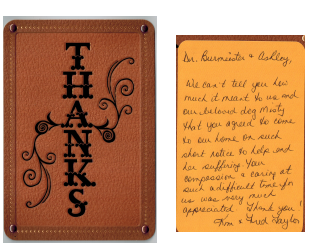 THANKS
Dr. Burmeister & Ashley,
We can't tell you how
much it meant to us and
our beloved dog Misty
that you agreed to come
to our home on such
short notice to help end
her suffering. Your
compassion & caring at
such a difficult time for
us was very much
appreciated. Thank you!
& Fred Taylor